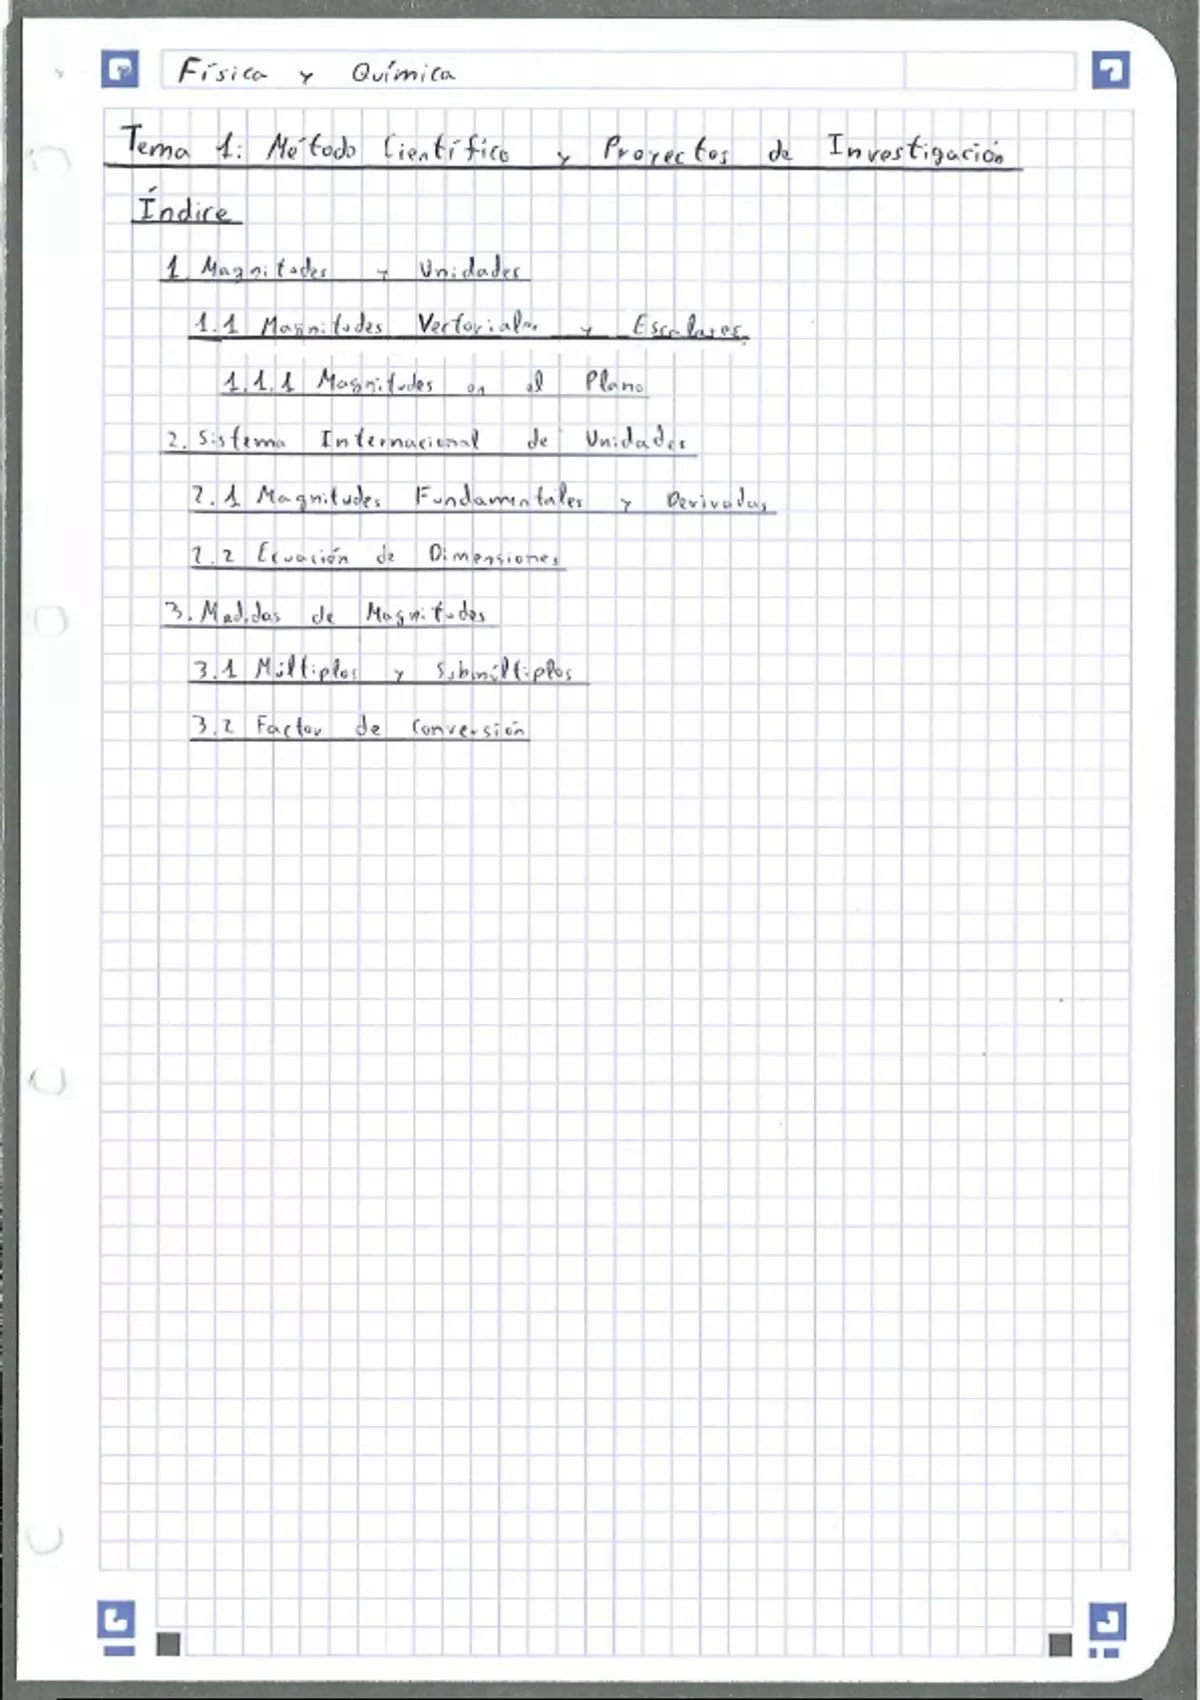 Física y Química
Tema 1: Método Científico y Proyectos de Investigación
Índice
1 Magnitudes y Unidades
1.1 Magnitudes Vectoriales y Escalares
1.1.1 Magnitudes en el Plano
2. Sistema Internacional de Unidades
2.1 Magnitudes Fundamentales y Derivadas
2.2 Ecuación de Dimensiones
3. Medidas de Magnitudes
3.1 Múltiplos y Submúltiplos
3.2 Factor de Conversión